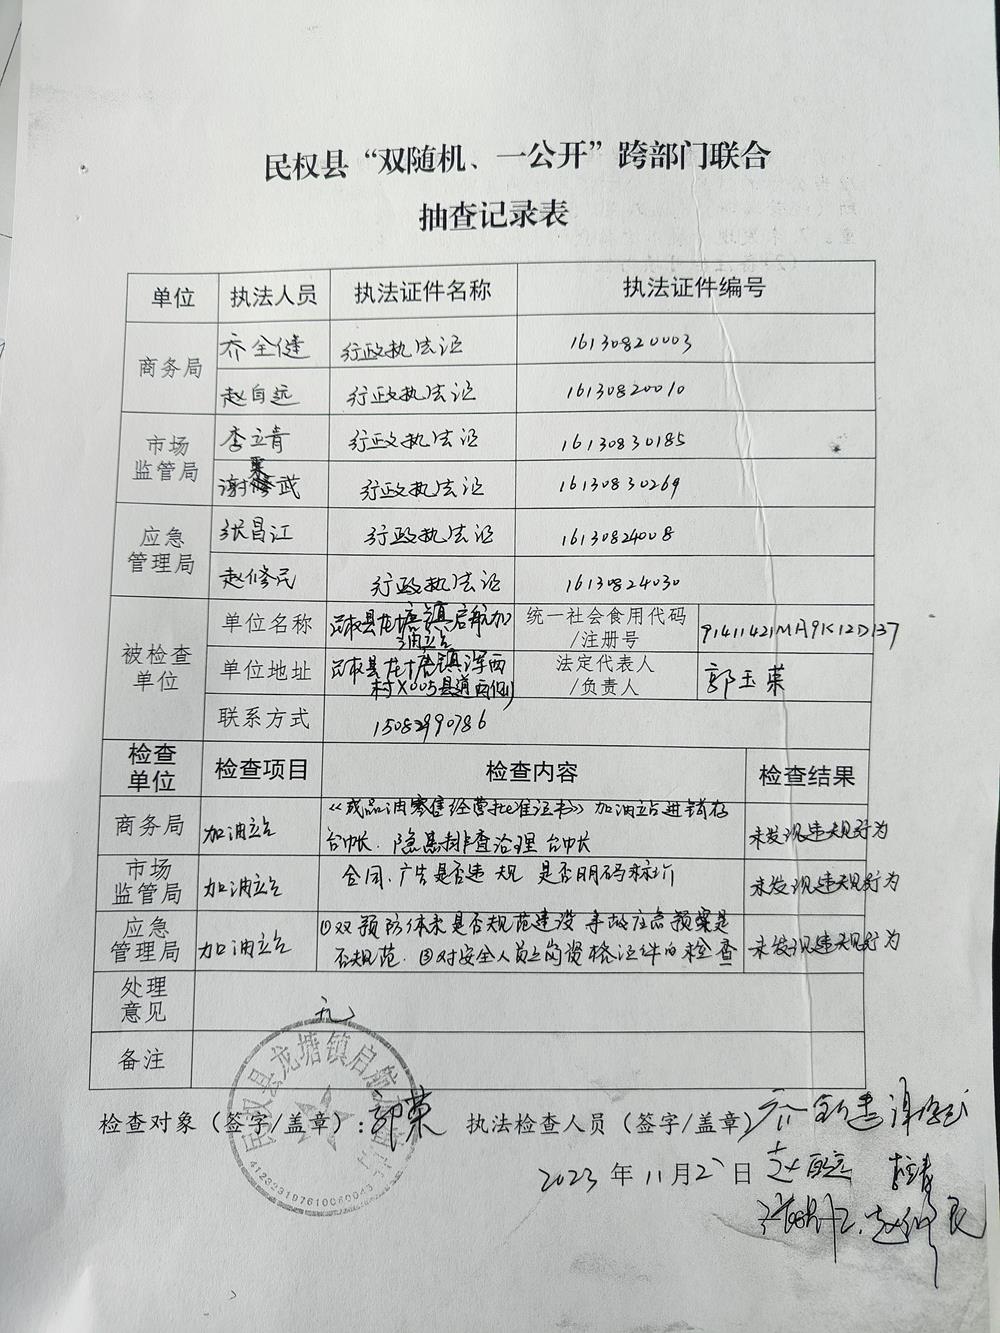 民权县“双随机、一公开”跨部门联合
抽查记录表
单位 执法人员 执法证件名称 执法证件编号
商务局 乔全健 行政执法证 16130820003
赵自远 行政执法证 16130820010
市场
监管局
李立青 行政执法证 16130830185
谢修武 行政执法证 16130830269
应急
管理局
张昌江 行政执法证 16130824008
赵修民 行政执法证 16130824030
被检查
单位
单位名称 民权县龙塘镇启航加
油站
统一社会食用代码
/注册号
91411421MA9K12D137
单位地址 民权县龙塘镇浑西
村X005县道西侧
法定代表人
/负责人
郭玉荣
联系方式 15082990786
检查
单位
检查项目 检查内容 检查结果
商务局 加油站 《成品油零售经营批准证书》加油站进销存
台帐.隐患排查治理 台帐
未发现违规行为
市场
监管局
加油站 合同.广告是否违规 是否明码标价 未发现违规行为
应急
管理局
加油站 ①双预防体系是否规范建设 事故应急预案是
否规范.②对安全人员上岗资格证件的检查
未发现违规行为
处理
意见
无
备注
检查对象（签字/盖章）: 执法检查人员（签字/盖章）乔全健
民权县龙塘镇启航
2023年11月2 日 赵自远
赵修民